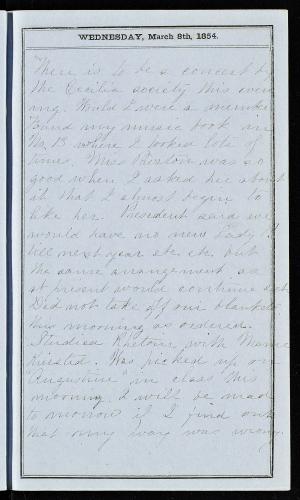 WEDNESDAY, March 8th, 1854.
There is to be a concert by
the Cecilia society this even
ing. Would I were a member
Found my music book in
No. 13 where I looked lots of
times. Miss was so
good when I asked her about
it that I almost begin to
like her. President said we
would have no new Lady P.
till next year etc. etc. but
the same arrangement as
at present would continue
Did not take off our blankets
this morning as ordered.
Studied Rhetoric with Mamie
Was picked up on
"Augustine" in class this
morning. I will be mad
to morrow if I find out
that my way was wrong.